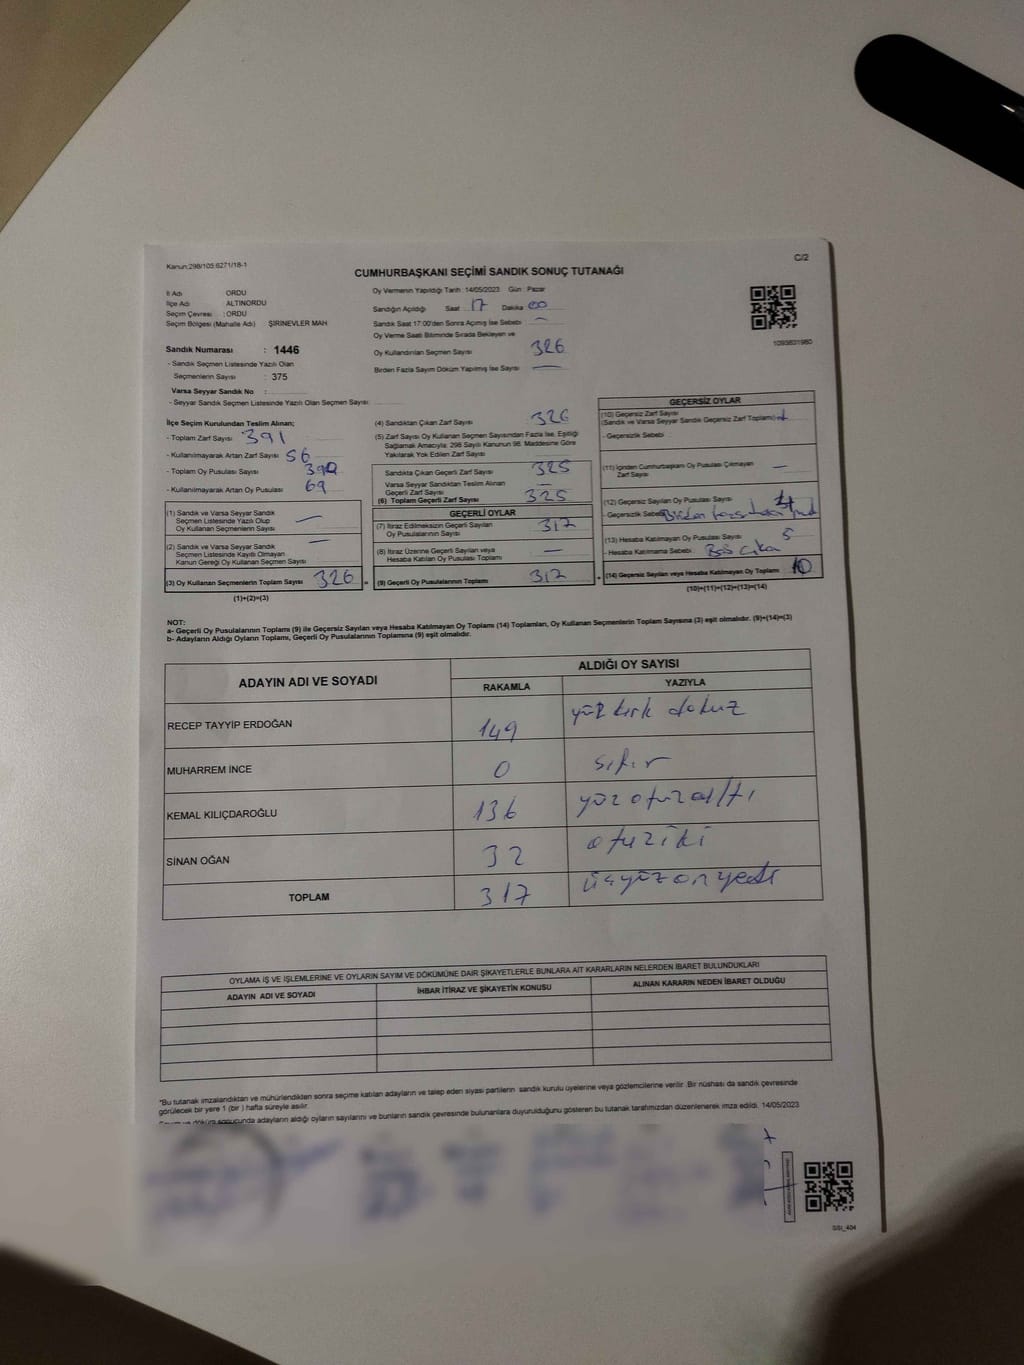 Kanun:298/105:6271/18-1
C/2
CUMHURBAŞKANI SEÇİMİ SANDIK SONUÇ TUTANAĞI
İl Adı ORDU
İlçe Adı ALTINORDU
Seçim Çevresi : ORDU
Seçim Bölgesi (Mahalle Adı) ŞİRİNEVLER MAH
Sandık Numarası : 1446
- Sandık Seçmen Listesinde Yazılı Olan
Seçmenlerin Sayısı : 375
Varsa Seyyar Sandık No :
- Seyyar Sandık Seçmen Listesinde Yazılı Olan Seçmen Sayısı:
Oy Vermenin Yapıldığı Tarih :14/05/2023 Gün : Pazar
Sandığın Açıldığı Saat 17 Dakika 00
Sandık Saat 17:00'den Sonra Açımış İse Sebebi —
Oy Verme Saati Bitiminde Sırada Bekleyen ve
Oy Kullandırılan Seçmen Sayısı 326
Birden Fazla Sayım Döküm Yapılmış İse Sayısı —
1093831980
İlçe Seçim Kurulundan Teslim Alınan;
- Toplam Zarf Sayısı 391
- Kullanılmayarak Artan Zarf Sayısı 56
- Toplam Oy Pusulası Sayısı
- Kullanılmayarak Artan Oy Pusulası 69
(1) Sandık ve Varsa Seyyar Sandık
Seçmen Listesinde Yazılı Olup
Oy Kullanan Seçmenlerin Sayısı —
(2) Sandık ve Varsa Seyyar Sandık
Seçmen Listesinde Kayıtlı Olmayan
Kanun Gereği Oy Kullanan Seçmen Sayısı —
(3) Oy Kullanan Seçmenlerin Toplam Sayısı 326 =
(1)+(2)=(3)
(4) Sandıktan Çıkan Zarf Sayısı 326
(5) Zarf Sayısı Oy Kullanan Seçmen Sayısından Fazla İse, Eşitliği
Sağlamak Amacıyla; 298 Sayılı Kanunun 98. Maddesine Göre
Yakılarak Yok Edilen Zarf Sayısı
Sandıkta Çıkan Geçerli Zarf Sayısı 325
Varsa Seyyar Sandıktan Teslim Alınan
Geçerli Zarf Sayısı —
(6) Toplam Geçerli Zarf Sayısı 325
GEÇERLİ OYLAR
(7) İtiraz Edilmeksizin Geçerli Sayılan
Oy Pusulasının Sayısı 317
(8) İtiraz Üzerine Geçerli Sayılan veya
Hesaba Katılan Oy Pusulası Toplamı —
(9) Geçerli Oy Pusulalarının Toplamı 317 +
GEÇERSİZ OYLAR
(10) Geçersiz Zarf Sayısı
(Sandık ve Varsa Seyyar Sandık Geçersiz Zarf Toplamı) 1
- Geçersizlik Sebebi
(11) İçinden Cumhurbaşkanı Oy Pusulası Çıkmayan
Zarf Sayısı —
(12) Geçersiz Sayılan Oy Pusulası Sayısı
- Geçersizlik Sebebi Birden fazla
(13) Hesaba Katılmayan Oy Pusulası Sayısı 5
- Hesaba Katılmama Sebebi : Boş Çıkan
(14) Geçersiz Sayılan veya Hesaba Katılmayan Oy Toplamı 10
(10)+(11)+(12)+(13)=(14)
NOT:
a- Geçerli Oy Pusulalarının Toplamı (9) ile Geçersiz Sayılan veya Hesaba Katılmayan Oy Toplamı (14) Toplamları, Oy Kullanan Seçmenlerin Toplam Sayısına (3) eşit olmalıdır. (9)+(14)=(3)
b- Adayların Aldığı Oyların Toplamı, Geçerli Oy Pusulalarının Toplamına (9) eşit olmalıdır.
ADAYIN ADI VE SOYADI ALDIĞI OY SAYISI
RAKAMLA YAZIYLA
RECEP TAYYİP ERDOĞAN 149 yüz kırk dokuz
MUHARREM İNCE 0 sıfır
KEMAL KILIÇDAROĞLU 136 yüz otuz altı
SİNAN OĞAN 32 otuz iki
TOPLAM 317 üçyüz on yedi
OYLAMA İŞ VE İŞLEMLERİNE VE OYLARIN SAYIM VE DÖKÜMÜNE DAİR ŞİKAYETLERLE BUNLARA AİT KARARLARIN NELERDEN İBARET BULUNDUKLARI
ADAYIN ADI VE SOYADI İHBAR İTİRAZ VE ŞİKAYETİN KONUSU ALINAN KARARIN NEDEN İBARET OLDUĞU
*Bu tutanak imzalandıktan ve mühürlendikten sonra seçime katılan adayların ve talep eden siyasi partilerin sandık kurulu üyelerine veya gözlemcilerine verilir. Bir nüshası da sandık çevresinde
görülecek bir yere 1 (bir ) hafta süreyle asılır.
sonucunda adayların aldığı oyların sayılarını ve bunların sandık çevresinde bulunanlara duyurulduğunu gösteren bu tutanak tarafımızdan düzenlenerek imza edildi. 14/05/2023
SSI_404